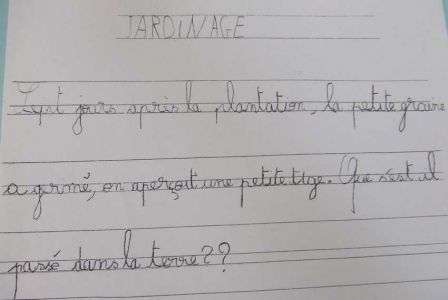 JARDINAGE
Sept jours après la plantation, la petite graine
a germé, on aperçoit une petite tige. Que s'est il
passé dans la terre??